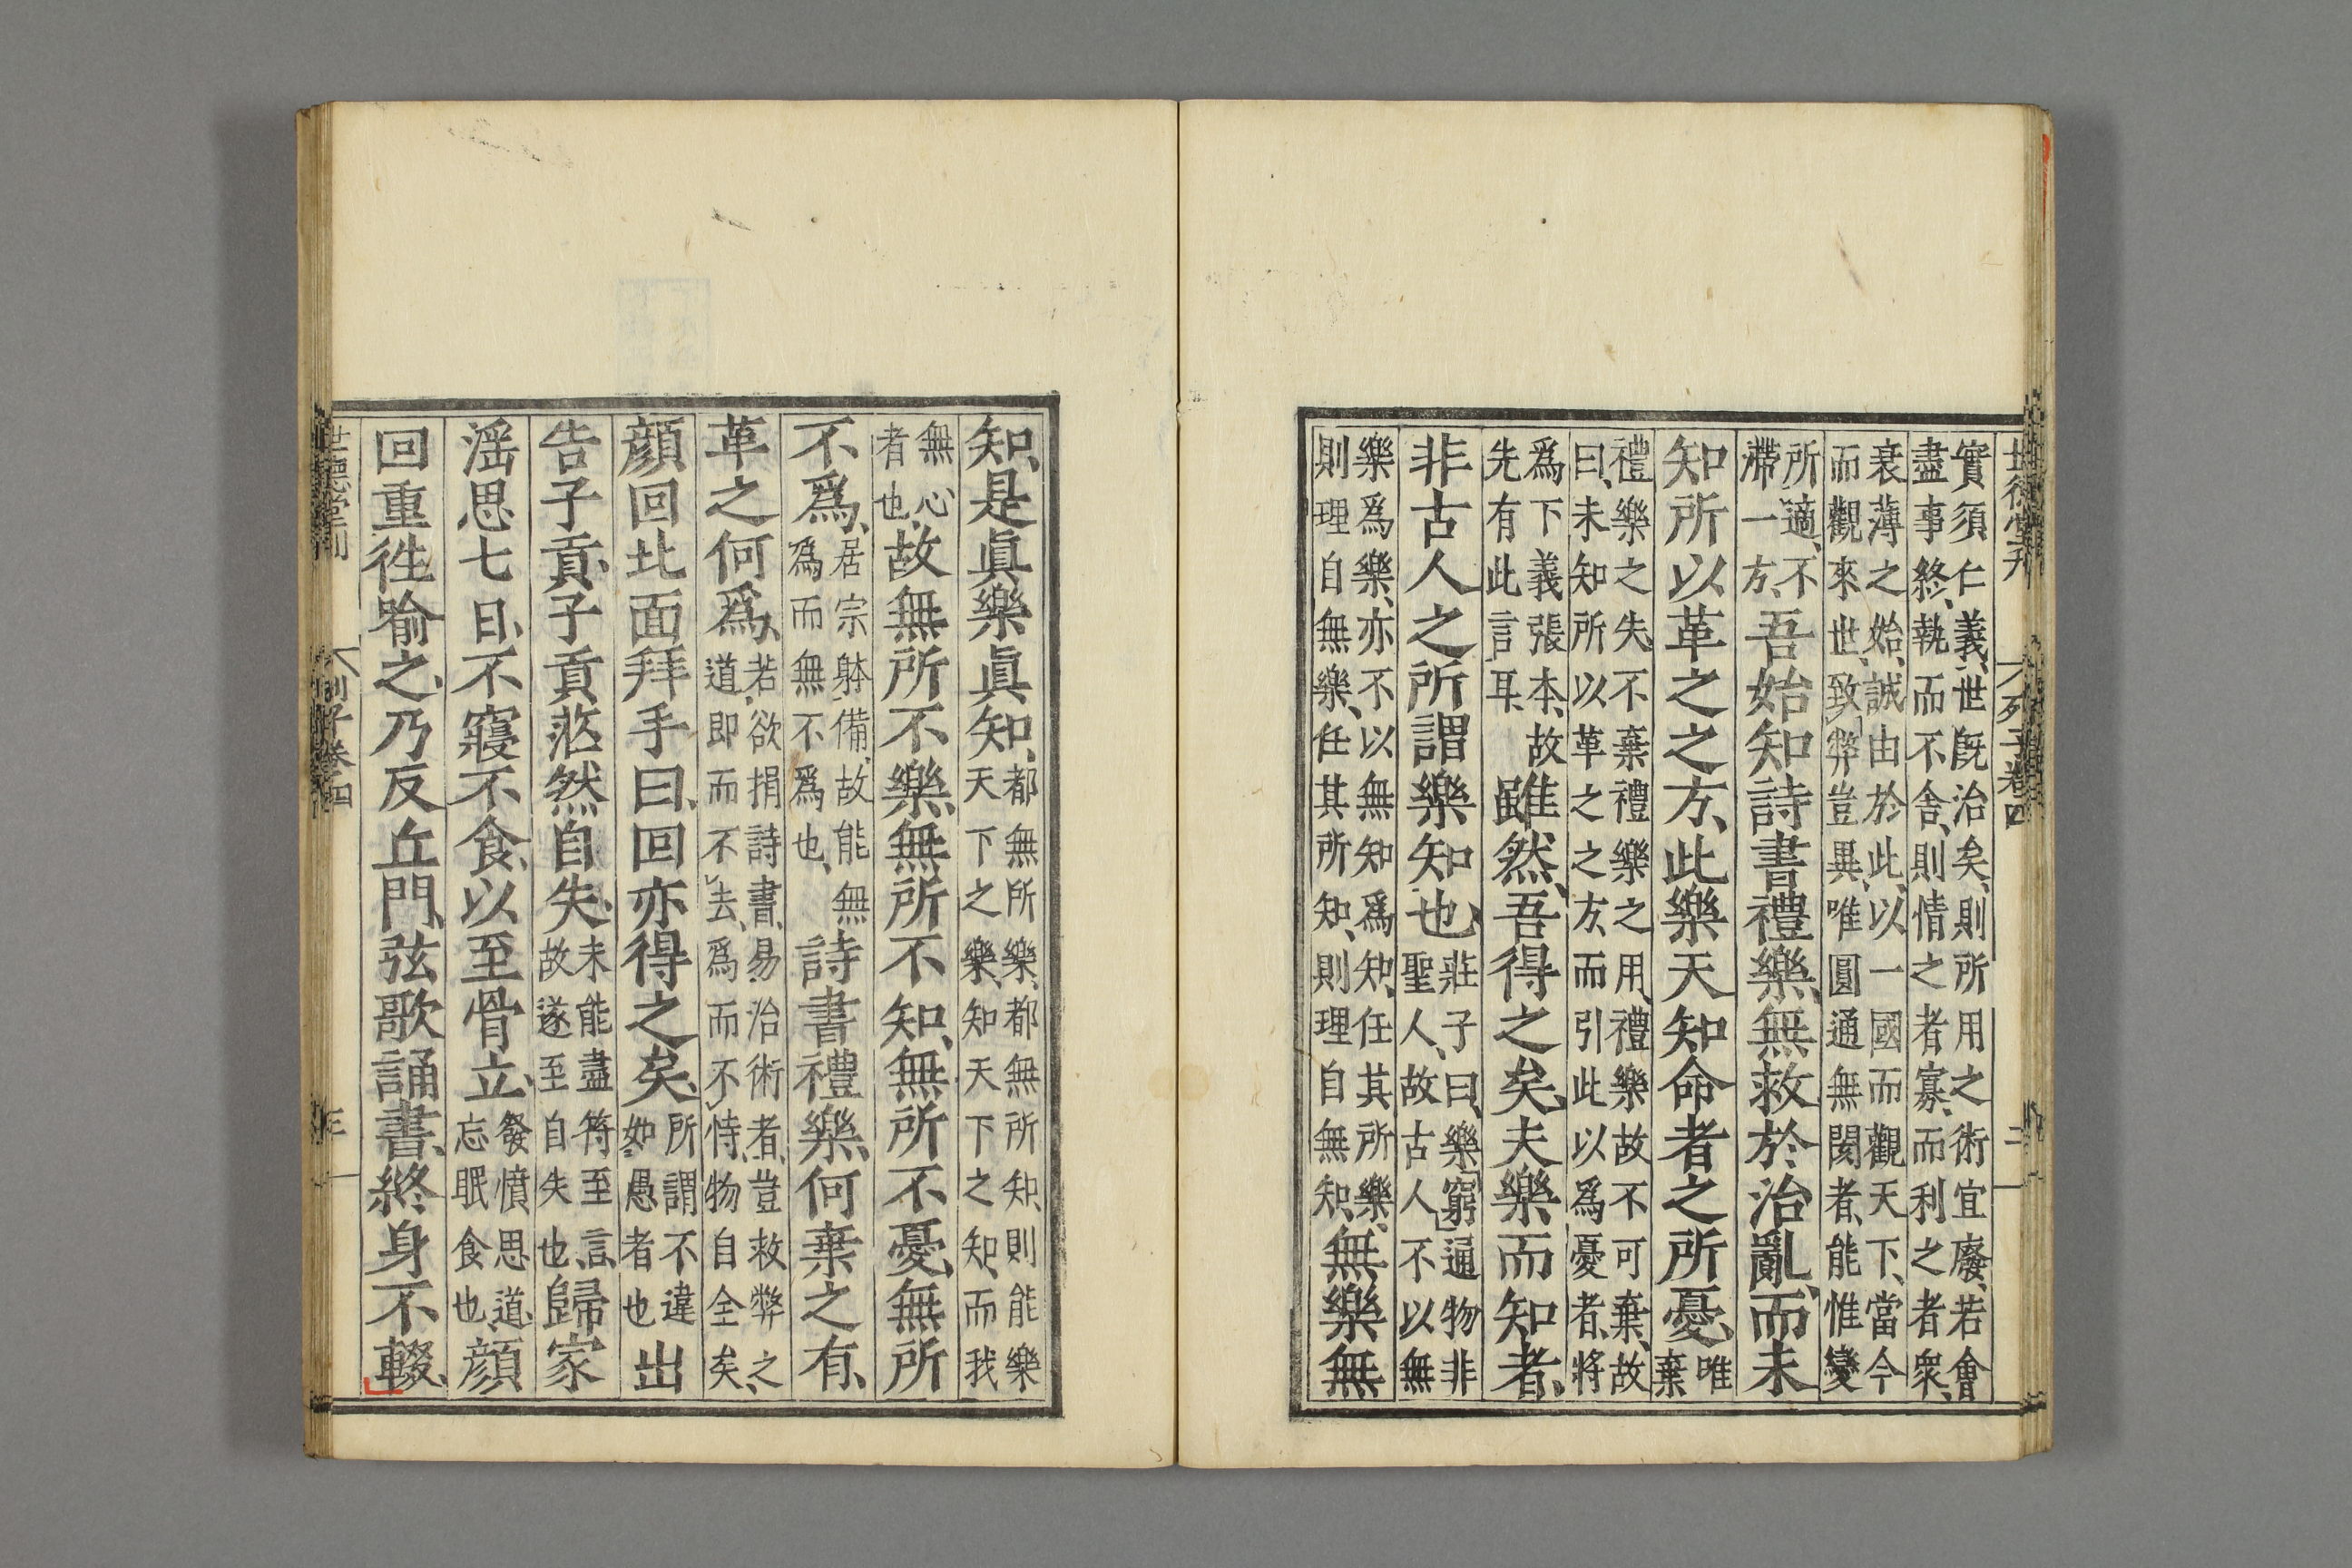 世德堂刊 列子卷四 二
實須仁義世既治矣則所用之術宜廢若會
盡事終執而不舍則情之者寡而利之者衆
衰薄之始誠由於此以一國而觀天下當今
而觀來世致弊豈異唯圓通無閡者能惟變
所適不滯一方吾始知詩書禮樂無救於治亂而未
知所以革之之方此樂天知命者之所憂唯棄
禮樂之失不棄禮樂之用禮樂故不可棄故
曰未知所以革之之方而引此以爲憂者將
爲下義張本故先有此言耳雖然吾得之矣夫樂而知者
非古人之所謂樂知也莊子曰樂窮通物非聖人故古人不以無
樂爲樂亦不以無知爲知任其所樂則理自無樂任其所知則理自無知無樂無
知是眞樂眞知都無所樂都無所知則能樂天下之樂知天下之知而我
無心者也故無所不樂無所不知無所不憂無所
不爲居宗躰備故能無爲而無不爲也詩書禮樂何棄之有
革之何爲若欲捐詩書易治術者豈救弊之道即而不去爲而不恃物自全矣
顔回北面拜手曰回亦得之矣所謂不違如愚者也出
告子貢子貢茫然自失未能盡符至言故遂至自失也歸家
淫思七日不寢不食以至骨立發憤思道忘眠食也顔
回重徃喻之乃反丘門弦歌誦書終身不輟
世德堂刊 列子卷四 三